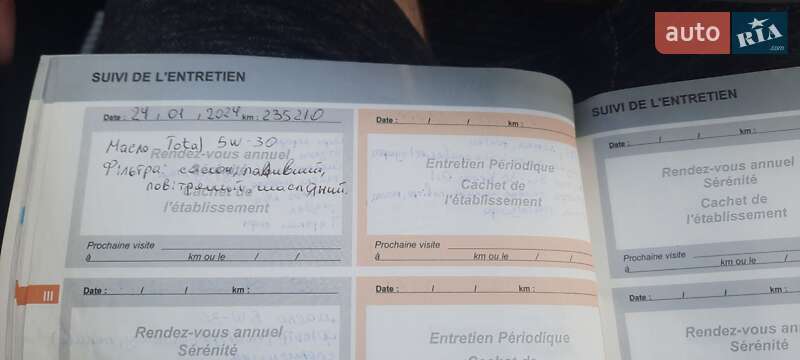 auto RIA .com
SUIVI DE L'ENTRETIEN
Date : 24 , 01 , 2024 km : 235210
Масло Total 5w-30
Rendez-vous annuel
Фільтра: салон, паливний,
Sérénité
повітряний, масляний.
Cachet de
l'établissement
Prochaine visite
à km ou le / /
Date : / / km :
Entretien Périodique
Cachet de
l'établissement
Prochaine visite
à km ou le / /
III
Date : / / km :
Rendez-vous annuel
Sérénité
Date : / / km :
Entretien Périodique
Cachet de
SUIVI DE L'ENTRETIEN
Date : / /
Rendez-vous annuel
Sérénité
Cachet de
l'établissement
Prochaine visite
à km ou le /
Date : / /
Rendez-vous ann
Sérénité